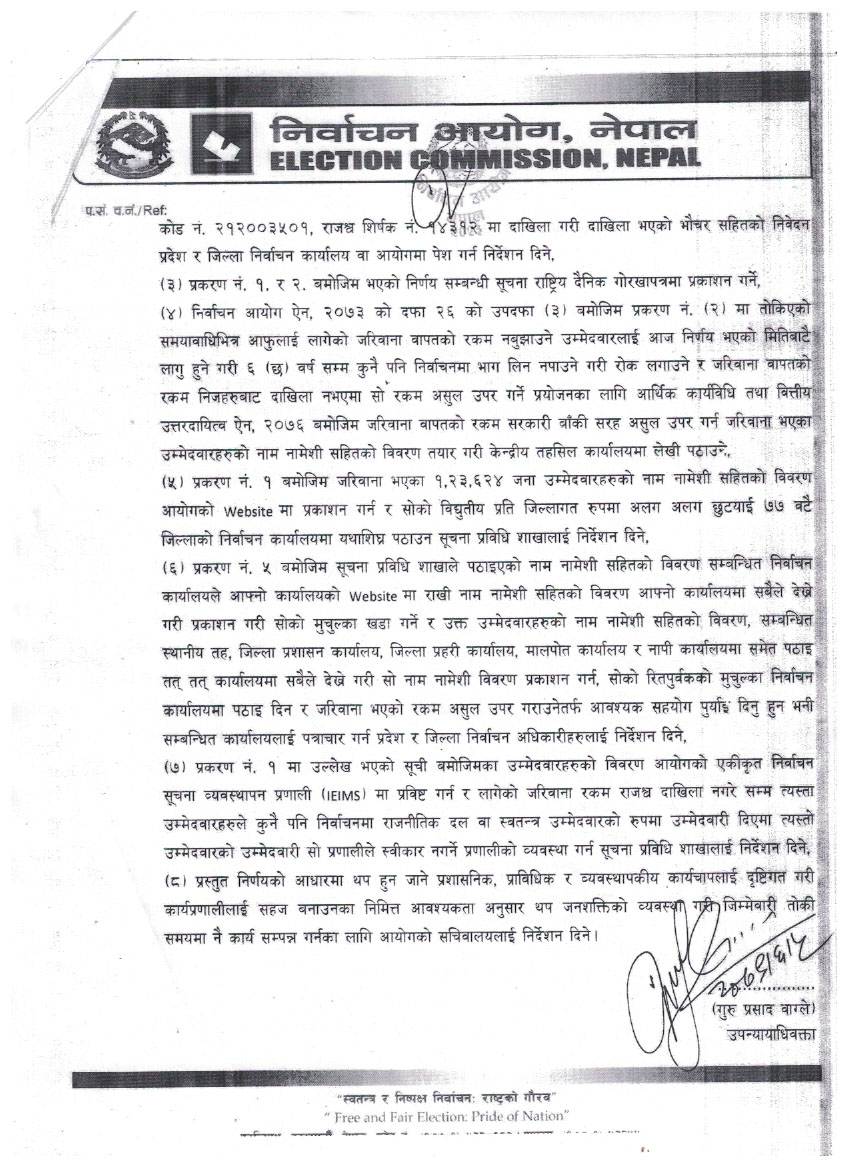 निर्वाचन आयोग, नेपाल
ELECTION COMMISSION, NEPAL
प.सं. च.नं./Ref:
कोड नं. २१२००३५०१, राजश्व शिर्षक नं. १४३१२ मा दाखिला गरी दाखिला भएको भौचर सहितको निवेदन
प्रदेश र जिल्ला निर्वाचन कार्यालय वा आयोगमा पेश गर्न निर्देशन दिने,
(३) प्रकरण नं. १. र २. बमोजिम भएको निर्णय सम्बन्धी सूचना राष्ट्रिय दैनिक गोरखापत्रमा प्रकाशन गर्ने,
(४) निर्वाचन आयोग ऐन, २०७३ को दफा २६ को उपदफा (३) बमोजिम प्रकरण नं. (२) मा तोकिएको
समयावाधिभित्र आफुलाई लागेको जरिवाना वापतको रकम नबुझाउने उम्मेदवारलाई आज निर्णय भएको मितिबाटै
लागु हुने गरी ६ (छ) वर्ष सम्म कुनै पनि निर्वाचनमा भाग लिन नपाउने गरी रोक लगाउने र जरिवाना वापतको
रकम निजहरुबाट दाखिला नभएमा सो रकम असुल उपर गर्ने प्रयोजनका लागि आर्थिक कार्यविधि तथा वित्तीय
उत्तरदायित्व ऐन, २०७६ बमोजिम जरिवाना वापतको रकम सरकारी बाँकी सरह असुल उपर गर्न जरिवाना भएका
उम्मेदवारहरुको नाम नामेशी सहितको विवरण तयार गरी केन्द्रीय तहसिल कार्यालयमा लेखी पठाउने,
(५) प्रकरण नं. १ बमोजिम जरिवाना भएका १,२३,६२४ जना उम्मेदवारहरुको नाम नामेशी सहितको विवरण
आयोगको Website मा प्रकाशन गर्न र सोको विद्युतीय प्रति जिल्लागत रुपमा अलग अलग छुटयाई ७७ वटै
जिल्लाको निर्वाचन कार्यालयमा यथाशिघ्र पठाउन सूचना प्रविधि शाखालाई निर्देशन दिने,
(६) प्रकरण नं. ५ बमोजिम सूचना प्रविधि शाखाले पठाइएको नाम नामेशी सहितको विवरण सम्बन्धित निर्वाचन
कार्यालयले आफ्नो कार्यालयको Website मा राखी नाम नामेशी सहितको विवरण आफ्नो कार्यालयमा सबैले देख्ने
गरी प्रकाशन गरी सोको मुचुल्का खडा गर्ने र उक्त उम्मेदवारहरुको नाम नामेशी सहितको विवरण, सम्बन्धित
स्थानीय तह, जिल्ला प्रशासन कार्यालय, जिल्ला प्रहरी कार्यालय, मालपोत कार्यालय र नापी कार्यालयमा समेत पठाइ
तत् तत् कार्यालयमा सबैले देख्ने गरी सो नाम नामेशी विवरण प्रकाशन गर्न, सोको रितपुर्वकको मुचुल्का निर्वाचन
कार्यालयमा पठाइ दिन र जरिवाना भएको रकम असुल उपर गराउनेतर्फ आवश्यक सहयोग पुर्याइ दिनु हुन भनी
सम्बन्धित कार्यालयलाई पत्राचार गर्न प्रदेश र जिल्ला निर्वाचन अधिकारीहरुलाई निर्देशन दिने,
(७) प्रकरण नं. १ मा उल्लेख भएको सूची बमोजिमका उम्मेदवारहरुको विवरण आयोगको एकीकृत निर्वाचन
सूचना व्यवस्थापन प्रणाली (IEIMS) मा प्रविष्ट गर्न र लागेको जरिवाना रकम राजश्व दाखिला नगरे सम्म त्यस्ता
उम्मेदवारहरुले कुनै पनि निर्वाचनमा राजनीतिक दल वा स्वतन्त्र उम्मेदवारको रुपमा उम्मेदवारी दिएमा त्यस्तो
उम्मेदवारको उम्मेदवारी सो प्रणालीले स्वीकार नगर्ने प्रणालीको व्यवस्था गर्न सूचना प्रविधि शाखालाई निर्देशन दिने,
(८) प्रस्तुत निर्णयको आधारमा थप हुन जाने प्रशासनिक, प्राविधिक र व्यवस्थापकीय कार्यचापलाई दृष्टिगत गरी
कार्यप्रणालीलाई सहज बनाउनका निमित्त आवश्यकता अनुसार थप जनशक्तिको व्यवस्था गरी जिम्मेबारी तोकी
समयमा नै कार्य सम्पन्न गर्नका लागि आयोगको सचिवालयलाई निर्देशन दिने।
२०७९।६।५
(गुरु प्रसाद वाग्ले)
उपन्यायाधिवक्ता
"स्वतन्त्र र निष्पक्ष निर्वाचन: राष्ट्रको गौरव"
" Free and Fair Election: Pride of Nation"